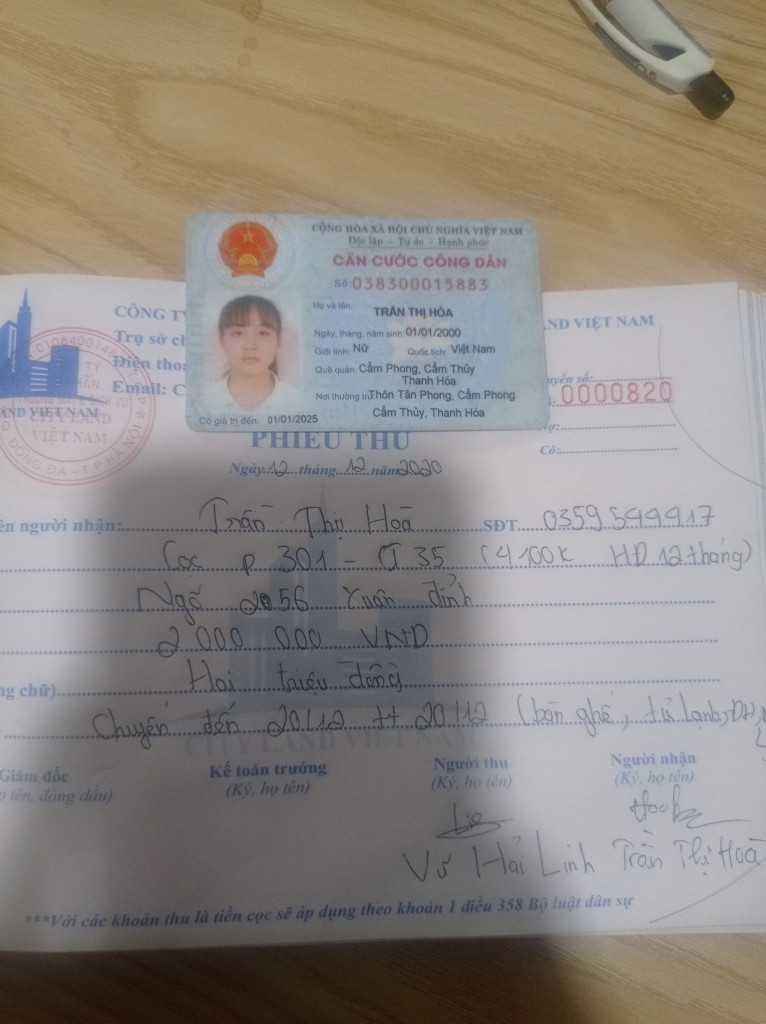 CỘNG HÒA XÃ HỘI CHỦ NGHĨA VIỆT NAM
Độc lập - Tự do - Hạnh phúc
CĂN CƯỚC CÔNG DÂN
Số: 038300015883
Họ và tên: TRẦN THỊ HÒA
Ngày, tháng, năm sinh: 01/01/2000
Giới tính: Nữ Quốc tịch: Việt Nam
Quê quán: Cẩm Phong, Cẩm Thủy
Thanh Hóa
Nơi thường trú: Thôn Tân Phong, Cẩm Phong
Cẩm Thủy, Thanh Hóa
Có giá trị đến: 01/01/2025
CÔNG TY
ND VIỆT NAM
Trụ sở
Điện tho
Email: C
AND VIỆT NAM
CITY LAND
VIỆT NAM
ĐỐNG ĐA - T.P HÀ NỘI
uyển số:
0000820
Nợ:
Có:
PHIẾU THU
Ngày 12 tháng 12 năm 2020
ên người nhận: Trần Thị Hoà SĐT 0359544417
Cọc P 301 - a 35 (4100k HĐ 12 tháng)
Ngõ 56 Xuân đỉnh
2 000 000 VNĐ
ng chữ) Hai triệu đồng
Chuyển đến 20/12 tt 20/12 (bàn ghế, tủ lạnh, ĐH,
CITY LAND VIỆT NAM
Giám đốc Kế toán trưởng Người thu Người nhận
ọ tên, đóng dấu) (Ký, họ tên) (Ký, họ tên) (Ký, họ tên)
Vũ Hải Linh Trần Thị Hoà
***Với các khoản thu là tiền cọc sẽ áp dụng theo khoản 1 điều 358 Bộ luật dân sự